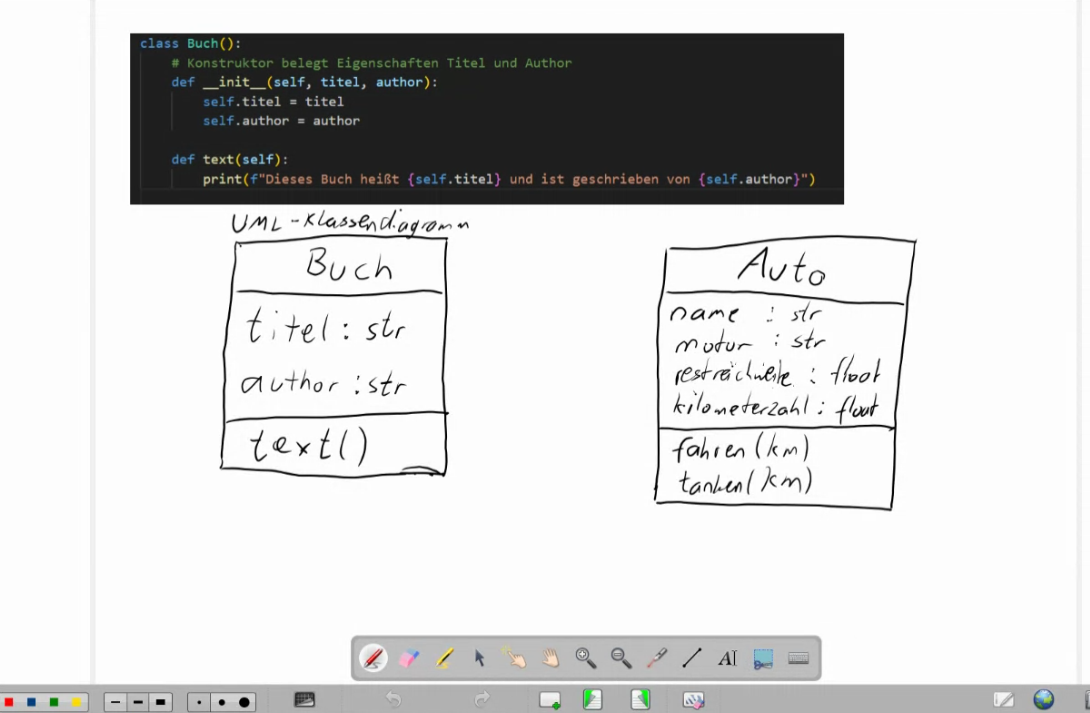 class Buch():
# Konstruktor belegt Eigenschaften Titel und Author
def __init__(self, titel, author):
self.titel = titel
self.author = author
def text(self):
print(f"Dieses Buch heißt {self.titel} und ist geschrieben von {self.author}")
UML-Klassendiagramm
Buch
titel: str
author: str
text()
Auto
name : str
motor : str
restreichweite : float
kilometerzahl : float
fahren(km)
tanken(km)
AI